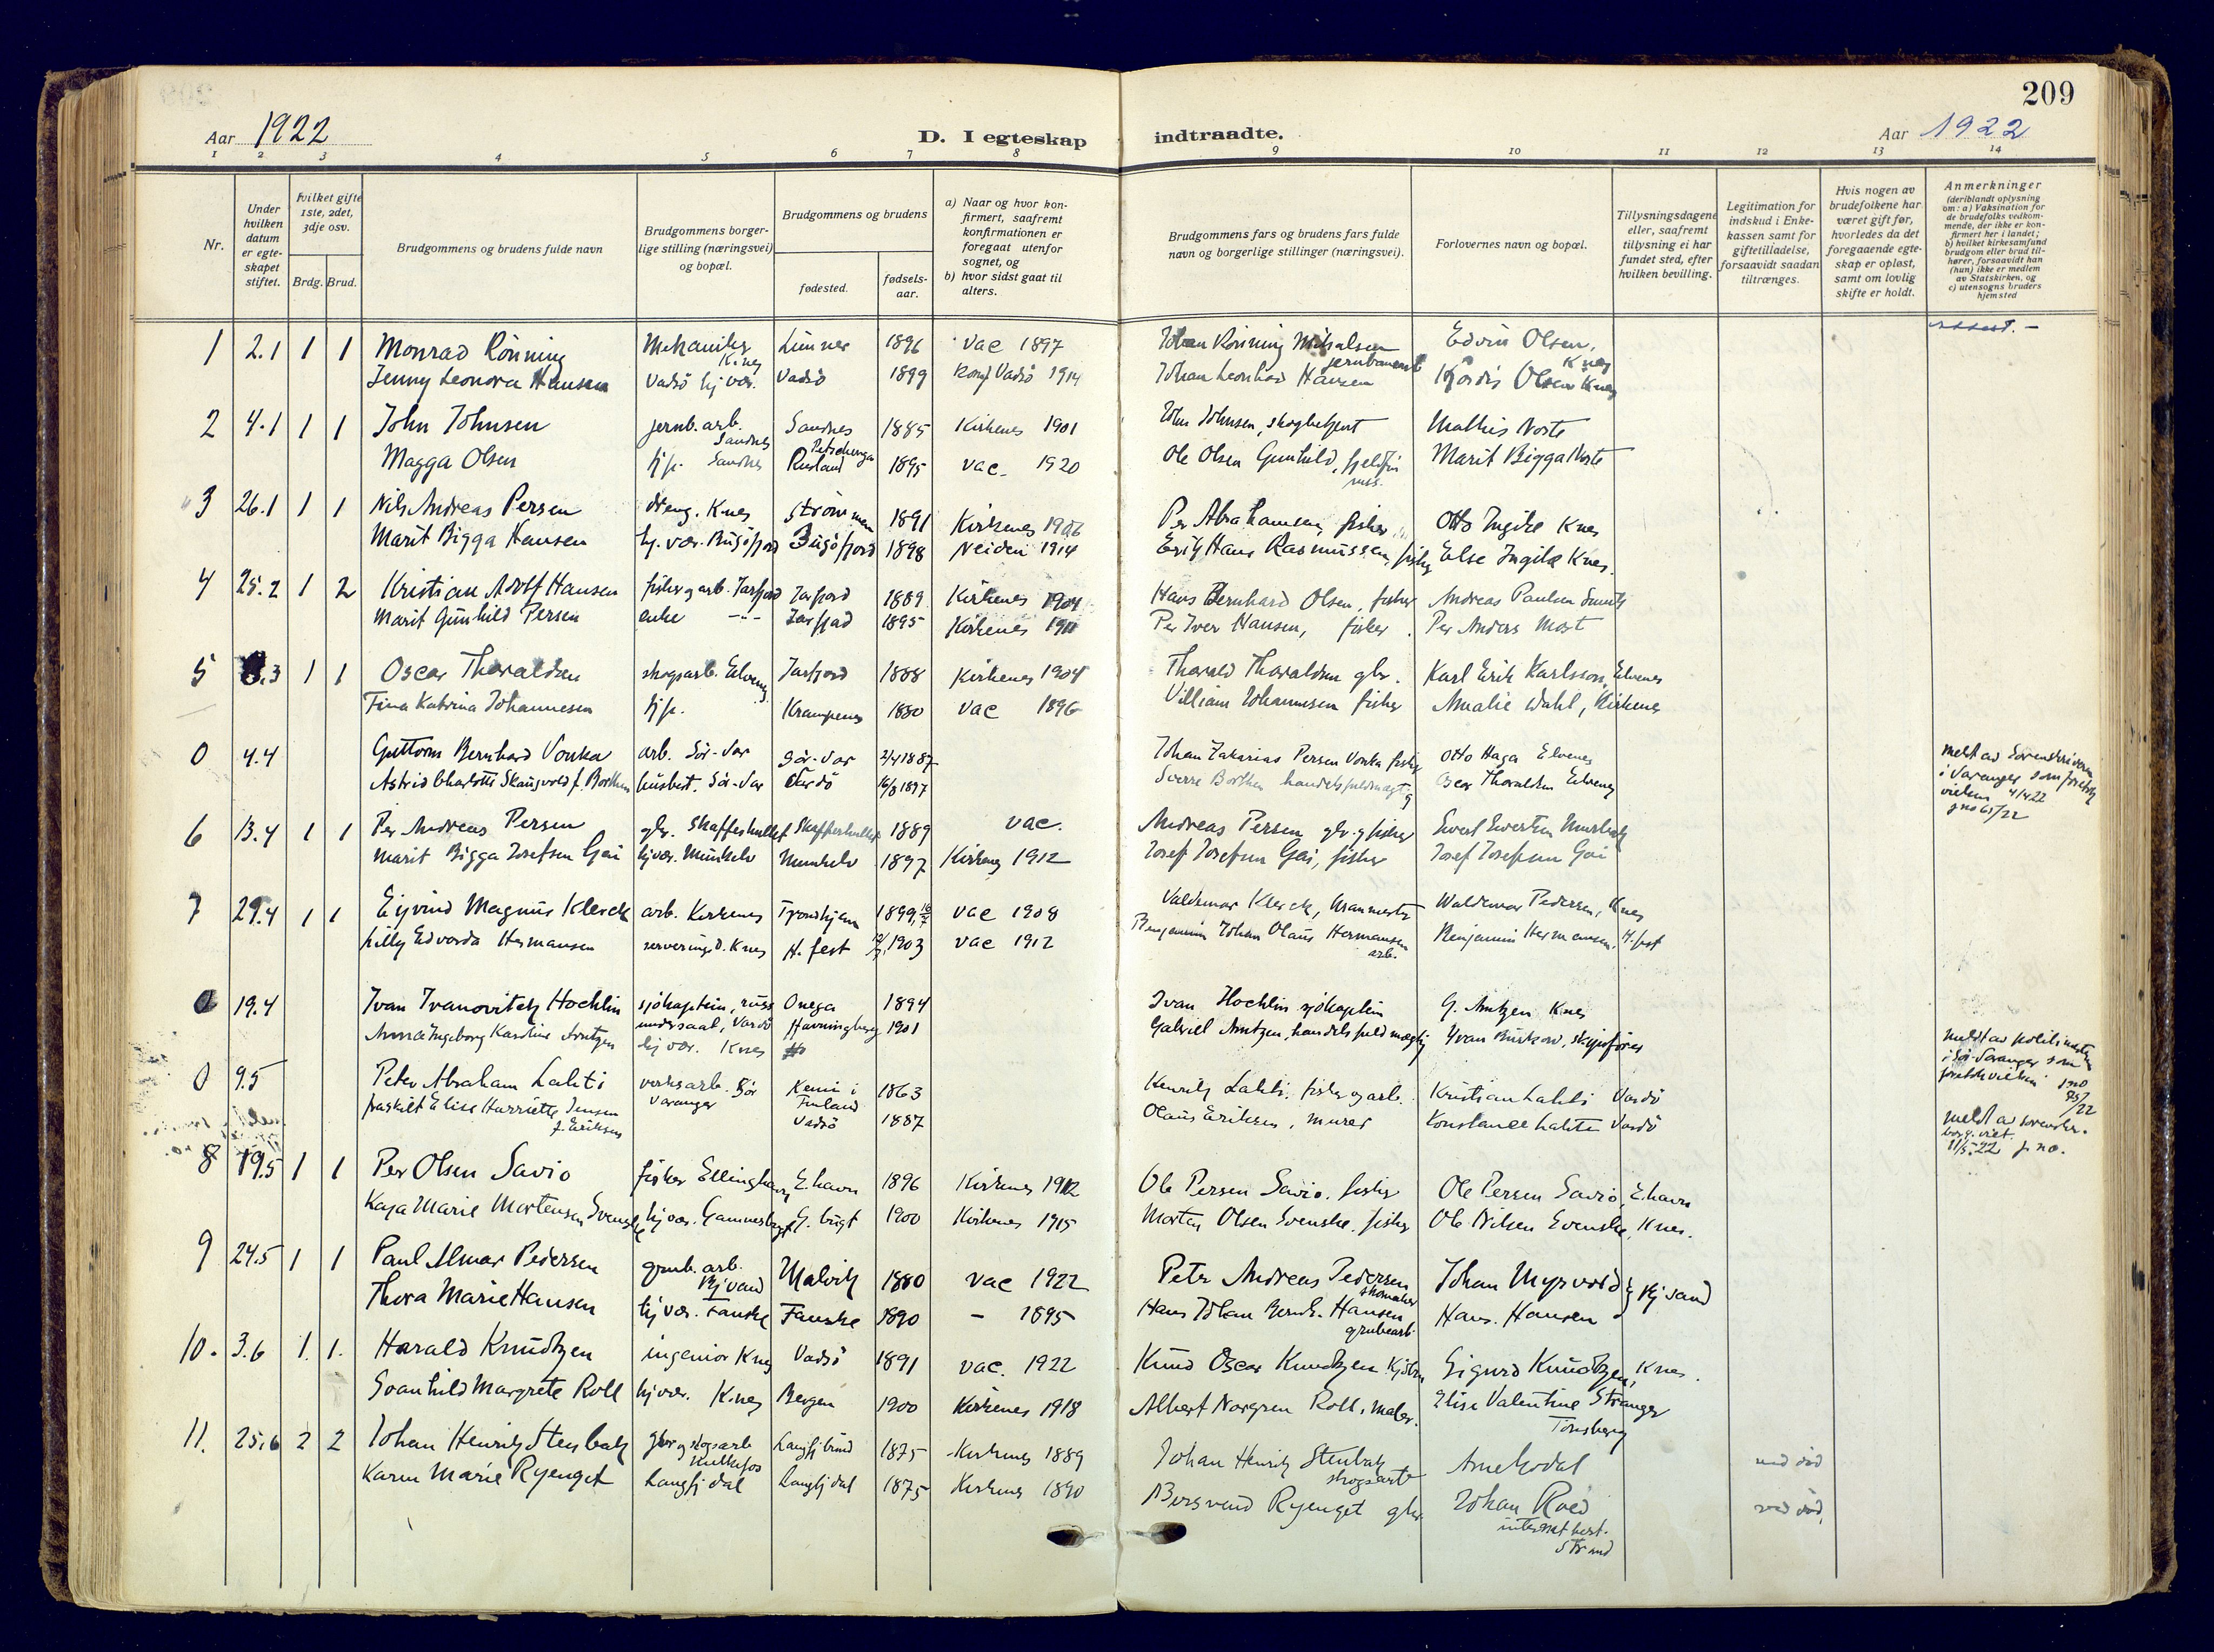 209
Aar 1922 D. I egteskap indtraadte. Aar 1922
1 2 3 4 5 6 7 8 9 10 11 12 13 14
Nr.
Under hvilken datum er egteskapet stiftet.
hvilket gifte 1ste, 2det, 3dje osv.
Brdg. Brud.
Brudgommens og brudens fulde navn
Brudgommens borgerlige stilling (næringsvei) og bopæl.
Brudgommens og brudens
fødested.
fødselsaar.
a) Naar og hvor konfirmert, saafremt konfirmationen er foregaat utenfor sognet, og
b) hvor sidst gaat til alters.
Brudgommens fars og brudens fars fulde navn og borgerlige stillinger (næringsvei).
Forlovernes navn og bopæl.
Tillysningsdagene eller, saafremt tillysning ei har fundet sted, efter hvilken bevilling.
Legitimation for indskud i Enkekassen samt for giftetilladelse, forsaavidt saadan tiltrænges.
Hvis nogen av brudefolkene har været gift før, hvorledes da det foregaaende egteskap er opløst, samt om lovlig skifte er holdt.
Anmerkninger (deriblandt oplysning om: a) Vaksination for de brudefolks vedkommende, der ikke er konfirmert her i landet; b) hvilket kirkesamfund brudgom eller brud tilhører, forsaavidt han (hun) ikke er medlem av Statskirken, og c) utensogns bruders hjemsted
1 2.1 1 1 Monrad Rönning Mekaniker Knes 1896 vac 1897 Johan Rönning Mikalsen Edvin Olsen, Knes
Jenny Leonora Hansen Vadsö hj vær. Vadsö 1899 konf Vadsö 1914 Johan Leonhard Hansen Hjördis Olsen Knes
2 4.1 1 1 John Johnsen jernb. arb. Sandnes Sandnes 1885 Kirkenes 1901 John Johnsen, skogbetjent Mathis Noste
Magga Olsen hjp. Sandnes Petschenga Rusland 1895 vac. 1920 Ole Olsen Gunhild, fjeldfin russ. Marit Bigga Noste
3 26.1 1 1 Nils Andreas Persen dreng. Knes Strömmen 1891 Kirkenes 1906 Per Abrahamsen, fisker Otto Ingilæ Knes
Marit Bigga Hansen hj. vær. Bugöfjord Bugöfjord 1898 Neiden 1914 Erik Hans Rasmussen, fisker Else Ingilæ Knes.
4 25.2 1 2 Kristian Adolf Hansen fisker og arb. Jarfjord Jarfjord 1889 Kirkenes 1904 Hans Bernhard Olsen, fisker Andreas Paulsen
Marit Gunhild Persen enke -"- Jarfjord 1895 Kirkenes 1911 Per Iver Hansen, fisker. Per Anders Most
5 .3 1 1 Oscar Thoraldsen skogsarb. Elvenes Jarfjord 1888 Kirkenes 1904 Thorald Thoraldsen gbr. Karl Erik Karlsson, Elvenes
Fina Katrina Johannesen hjp. Krampenes 1880 vac 1896 Villiam Johannesen fisker Amalie Wahl, Kirkenes
0 4.4 Guttorm Bernhard Vonka arb. Sör-Var Sör-Var 2/4 1887 Johan Zakarias Persen Vonka fisker Otto Haga Elvenes
Astrid Charlotte Skaugvold f. Borthen husbest. Sör-Var Vardö 16/8 1897 Sverre Borthen handelsfuldmægtig Oscar Thoraldsen Elvenes
meldt av Sorenskriveren i Varanger som foretok vielsen 4/4 22 jno 65/22
6 13.4 1 1 Per Andreas Persen gbr. Skafferhullet Skafferhullet 1889 vac. Andreas Persen gbr. og fisker
Marit Bigga Josefsen Gai hjvær. Munkelv Munkelv 1897 Kirkenes 1912 Josef Josefsen Gai, fisker Josef Josefsen Gai
7 29.4 1 1 Ejvind Magnus Klerck arb. Kirkenes Trondhjem 1899 vac 1908 Valdemar Klerck, kranmester Waldemar Pedersen, Knes
Lilly Edvarda Hermansen servering.d. Knes H. fest 1903 vac 1912 Benjamin Johan Olaus Hermansen arb. Benjamin Hermansen, H.fest
0 19.4 Ivan Ivanovitch Hochlin sjökaptein, russ undersaat, Vardö Onega 1894 Ivan Hochlin sjökaptein G. Arntzen Knes
Anna Ingeborg Karoline Arntzen hj vær. Knes Havningberg 1901 Gabriel Arntzen, handelsfuldmægtig Yvan Burkow, skipsförer
meldt av politimesteren i Sör-Varanger som foretok vielsen jno 95/22
0 9.5 Peter Abraham Lahti verksarb. Sör Varanger Kemi i Finland 1863 Henrik Lahti, fisker og arb. Kristian Lahti Vardö
fraskilt Elise Harriette Jensen f. Eriksen Vadsö 1887 Olaus Eriksen, murer Konstance Lahti Vardö
meldt av sorenskr. borg. viet. 11/5-22 jno.
8 19.5 1 1 Per Olsen Savio fisker Ellinghavn E.havn 1896 Kirkenes 1912 Ole Persen Savio, fisker Ole Persen Savio, E.havn
Kaja Marie Mortensen Svenske hj vær. Gammesbugt G. bugt 1900 Kirkenes 1915 Morten Olsen Svenske, fisker Ole Nilsen Svenske, Knes.
9 24.5 1 1 Paul Almar Pedersen grub. arb. Bjvand Malvik 1880 vac 1922 Peter Andreas Pedersen skomaker Johan Myrvold
Thora Marie Hansen hj vær. Fauske Fauske 1890 – 1895 Hans Johan Bernh. Hansen grubearb. Hans. Hansen
10. 3.6 1. 1. Harald Knudtzen ingeniör Knes Vadsö 1891 vac. 1922 Knud Oscar Knudtzen Sigurd Knudtzen, Knes.
Svanhild Margrete Roll hjvær. Knes Bergen 1900 Kirkenes 1918 Albert Norgren Roll, maler. Elise Valentine Stranger Tönsberg
11. 25.6 2 2 Johan Henrik Stenbak gbr og skogsarb Langfj bund 1875 Kirkenes 1889 Johan Henrik Stenbak skogsarb Arne Lodal ved död
Karen Marie Ryenget Langfj dal Langfj dal 1875 Kirkenes 1890 Bersvend Ryenget gbr Johan Roed internatbest. Strand ved död.